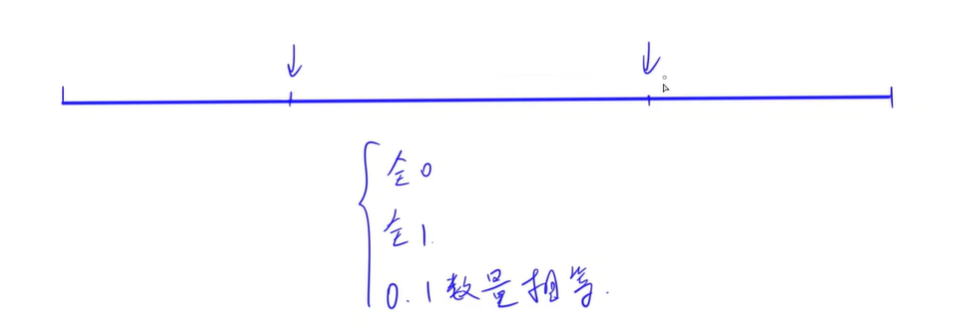 全0
全1.
0.1数量相等.